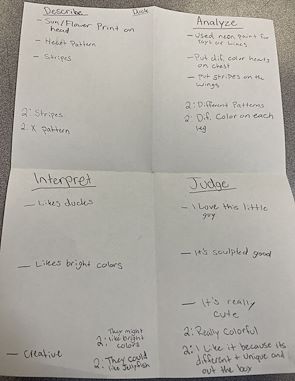 Describe
Duck
- Sun/Flower Print on
head
- Heart Pattern
- Stripes
2: Stripes
2: X pattern
Analyze
- Used neon paint for
lines
- Put dif. color hearts
on chest
- Put Stripes on the
wings
2: Different Patterns
2: Dif. Color on each
leg
Interpret
- Likes ducks
- Likes bright colors
They might
2: like bright
colors
- Creative
2: They could
like
Judge
- I Love this little
guy
- It's sculpted good
- It's really
cute
2: Really Colorful
2: I Like it because its
different + unique and
out the box